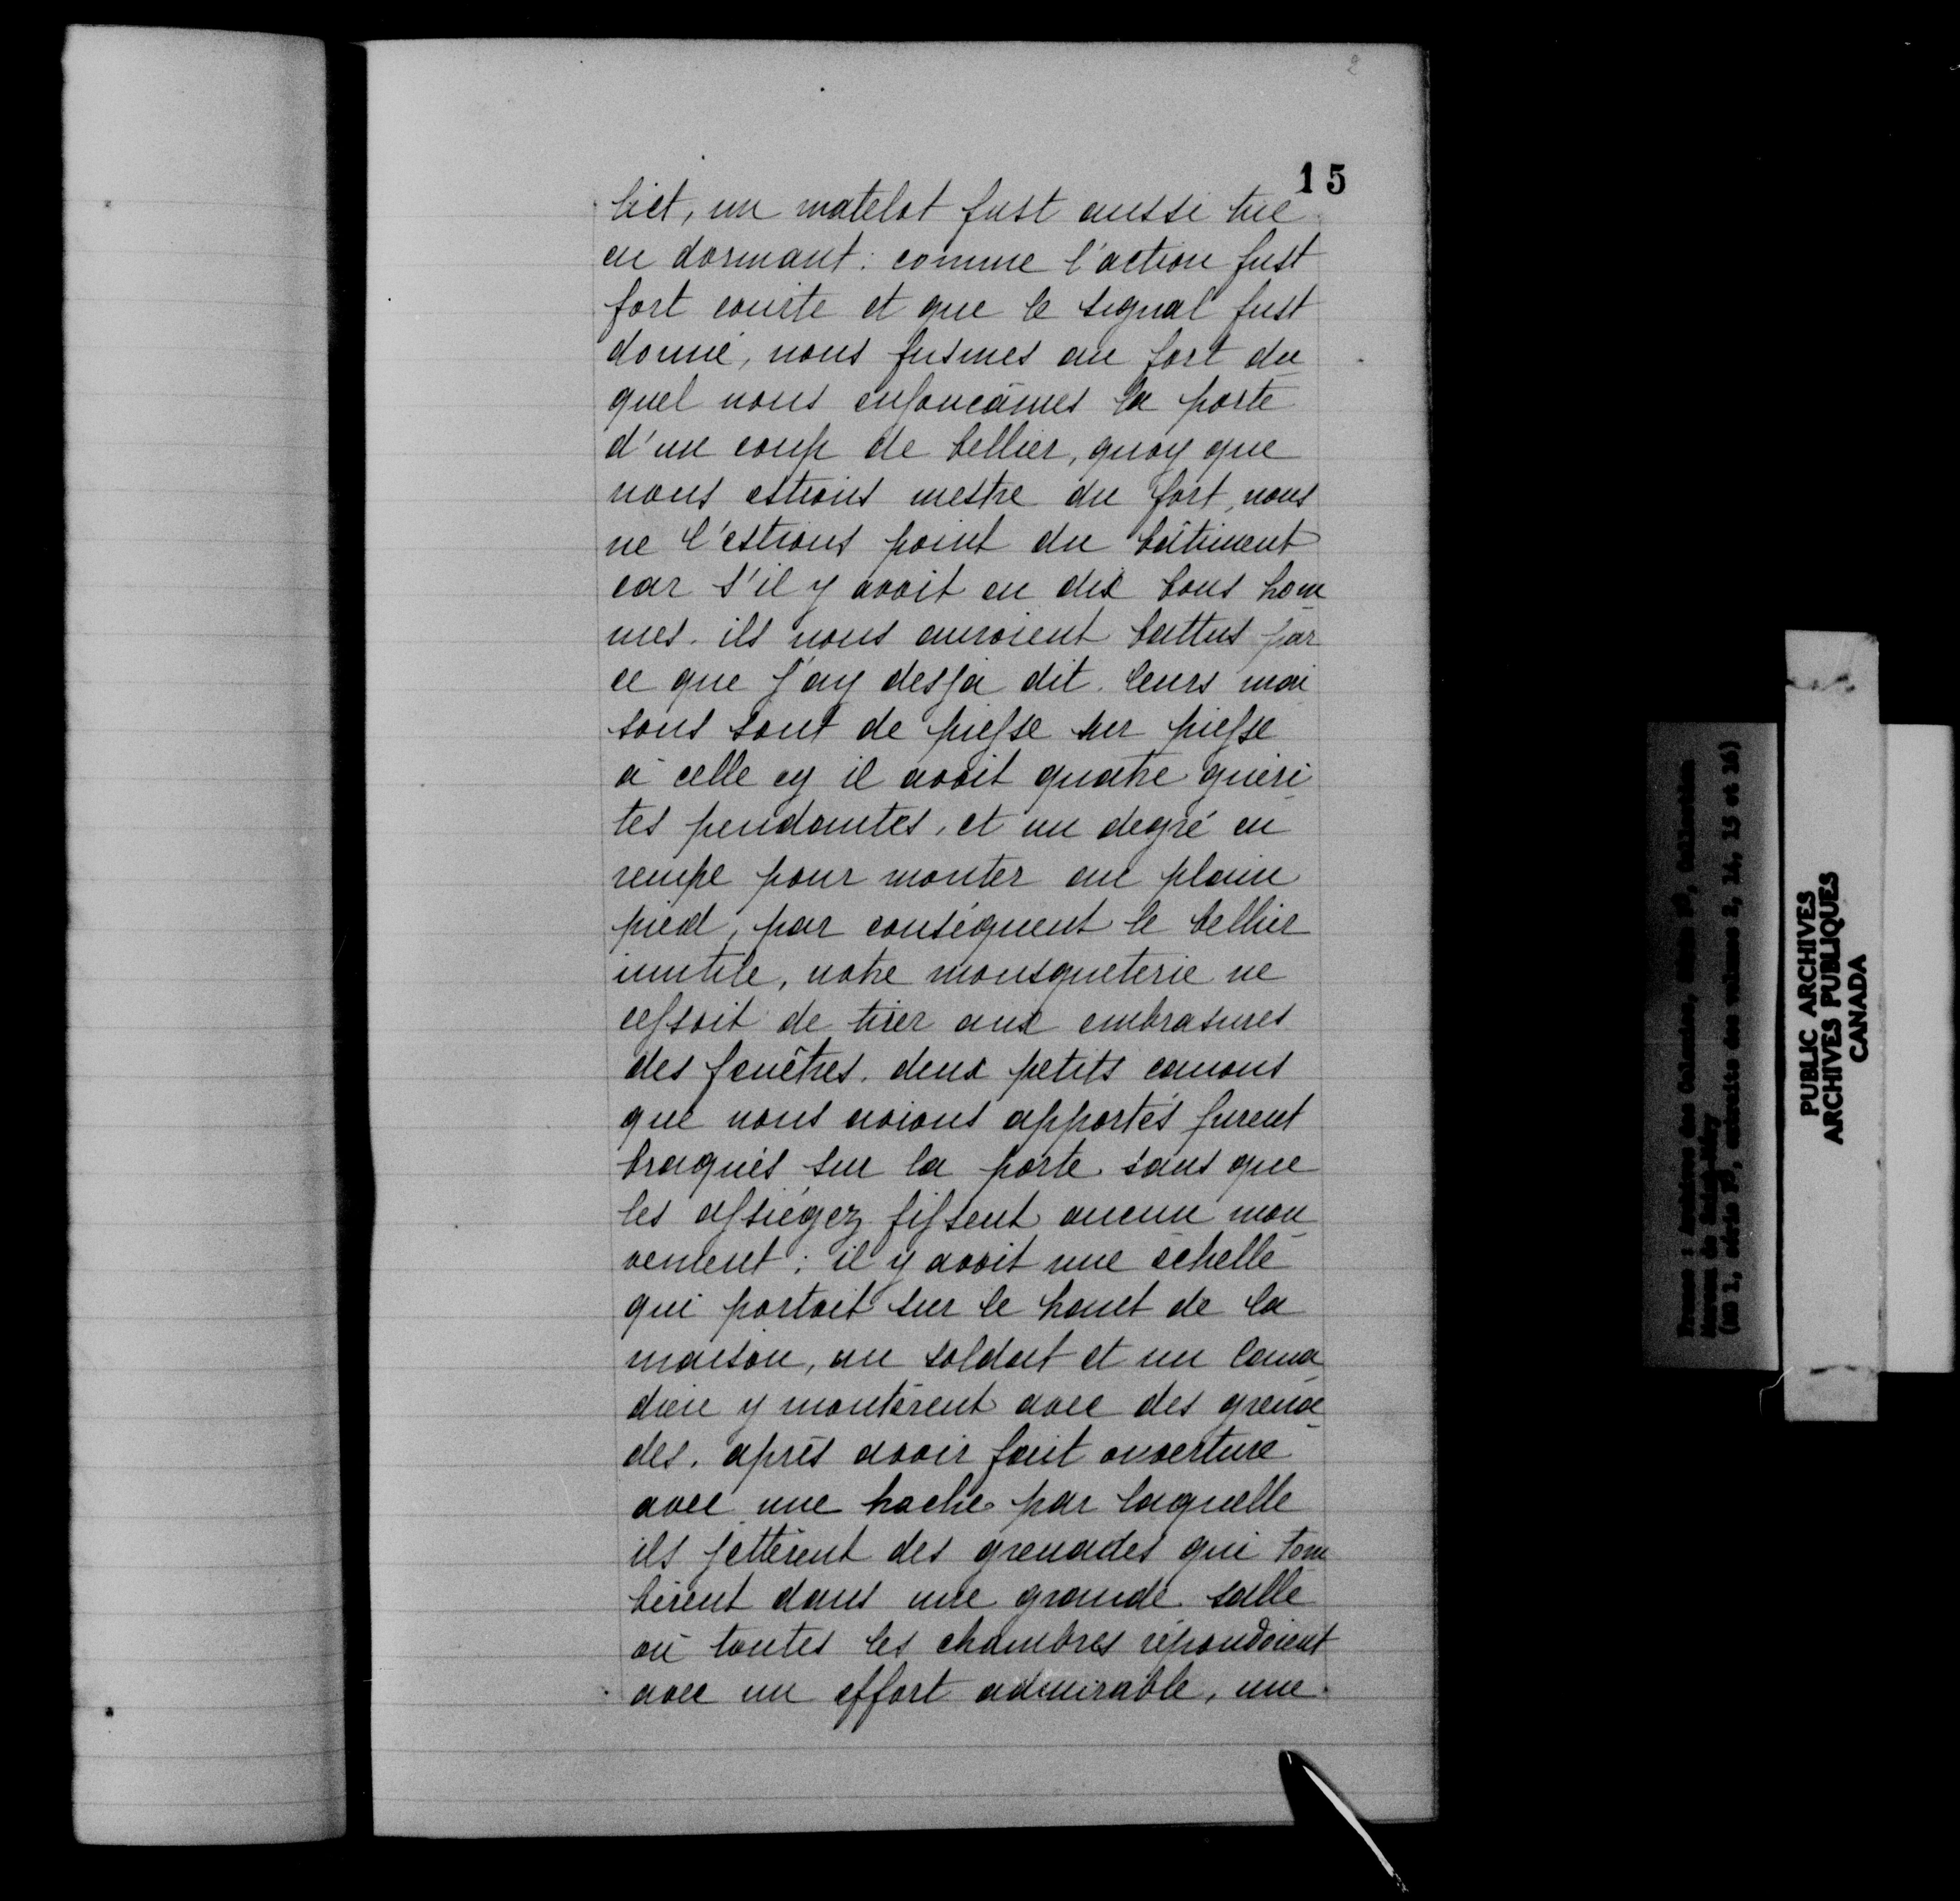 2
15
liet, un matelot fust aussi tué
en dormant: comme l'action fust
fort courte et que le signal fust
donné, nous fusmes au fort du
quel nous enfoncâmes la porte
d'un coup de bellier, quoy que
nous estions mestre du fort, nous
ne l'estions point du bâtiment
car s'il y avoit eu dix bons hom
mes. ils nous auroient battus par
ce que j'ay desja dit. leurs mai
sons sont de piesse sur piesse
à celle cy il avoit quatre guéri
tes pendantes, et un degré en
rempe pour monter au plain
pied, par conséquent le bellier
inutile, notre mousqueterie ne
cessoit de tirer aux embrasures
des fenêtres. deux petits canons
que nous avions apportés furent
braqués sur la porte sans que
les assiégez fissent aucun mou
vement; il y avoit une échelle
qui portoit sur le haut de la
maison, un soldat et un Cana
dien y montèrent avec des grena
des. après avoir fait ouverture
avec une hache par laquelle
ils jettèrent des grenades qui tom
bèrent dans une grande salle
où toutes les chambres répondoient
avec un effort admirable, une
PUBLIC ARCHIVES
ARCHIVES PUBLIQUES
CANADA
France : Archives des Colonies, Collection
Moreau de Saint-Méry